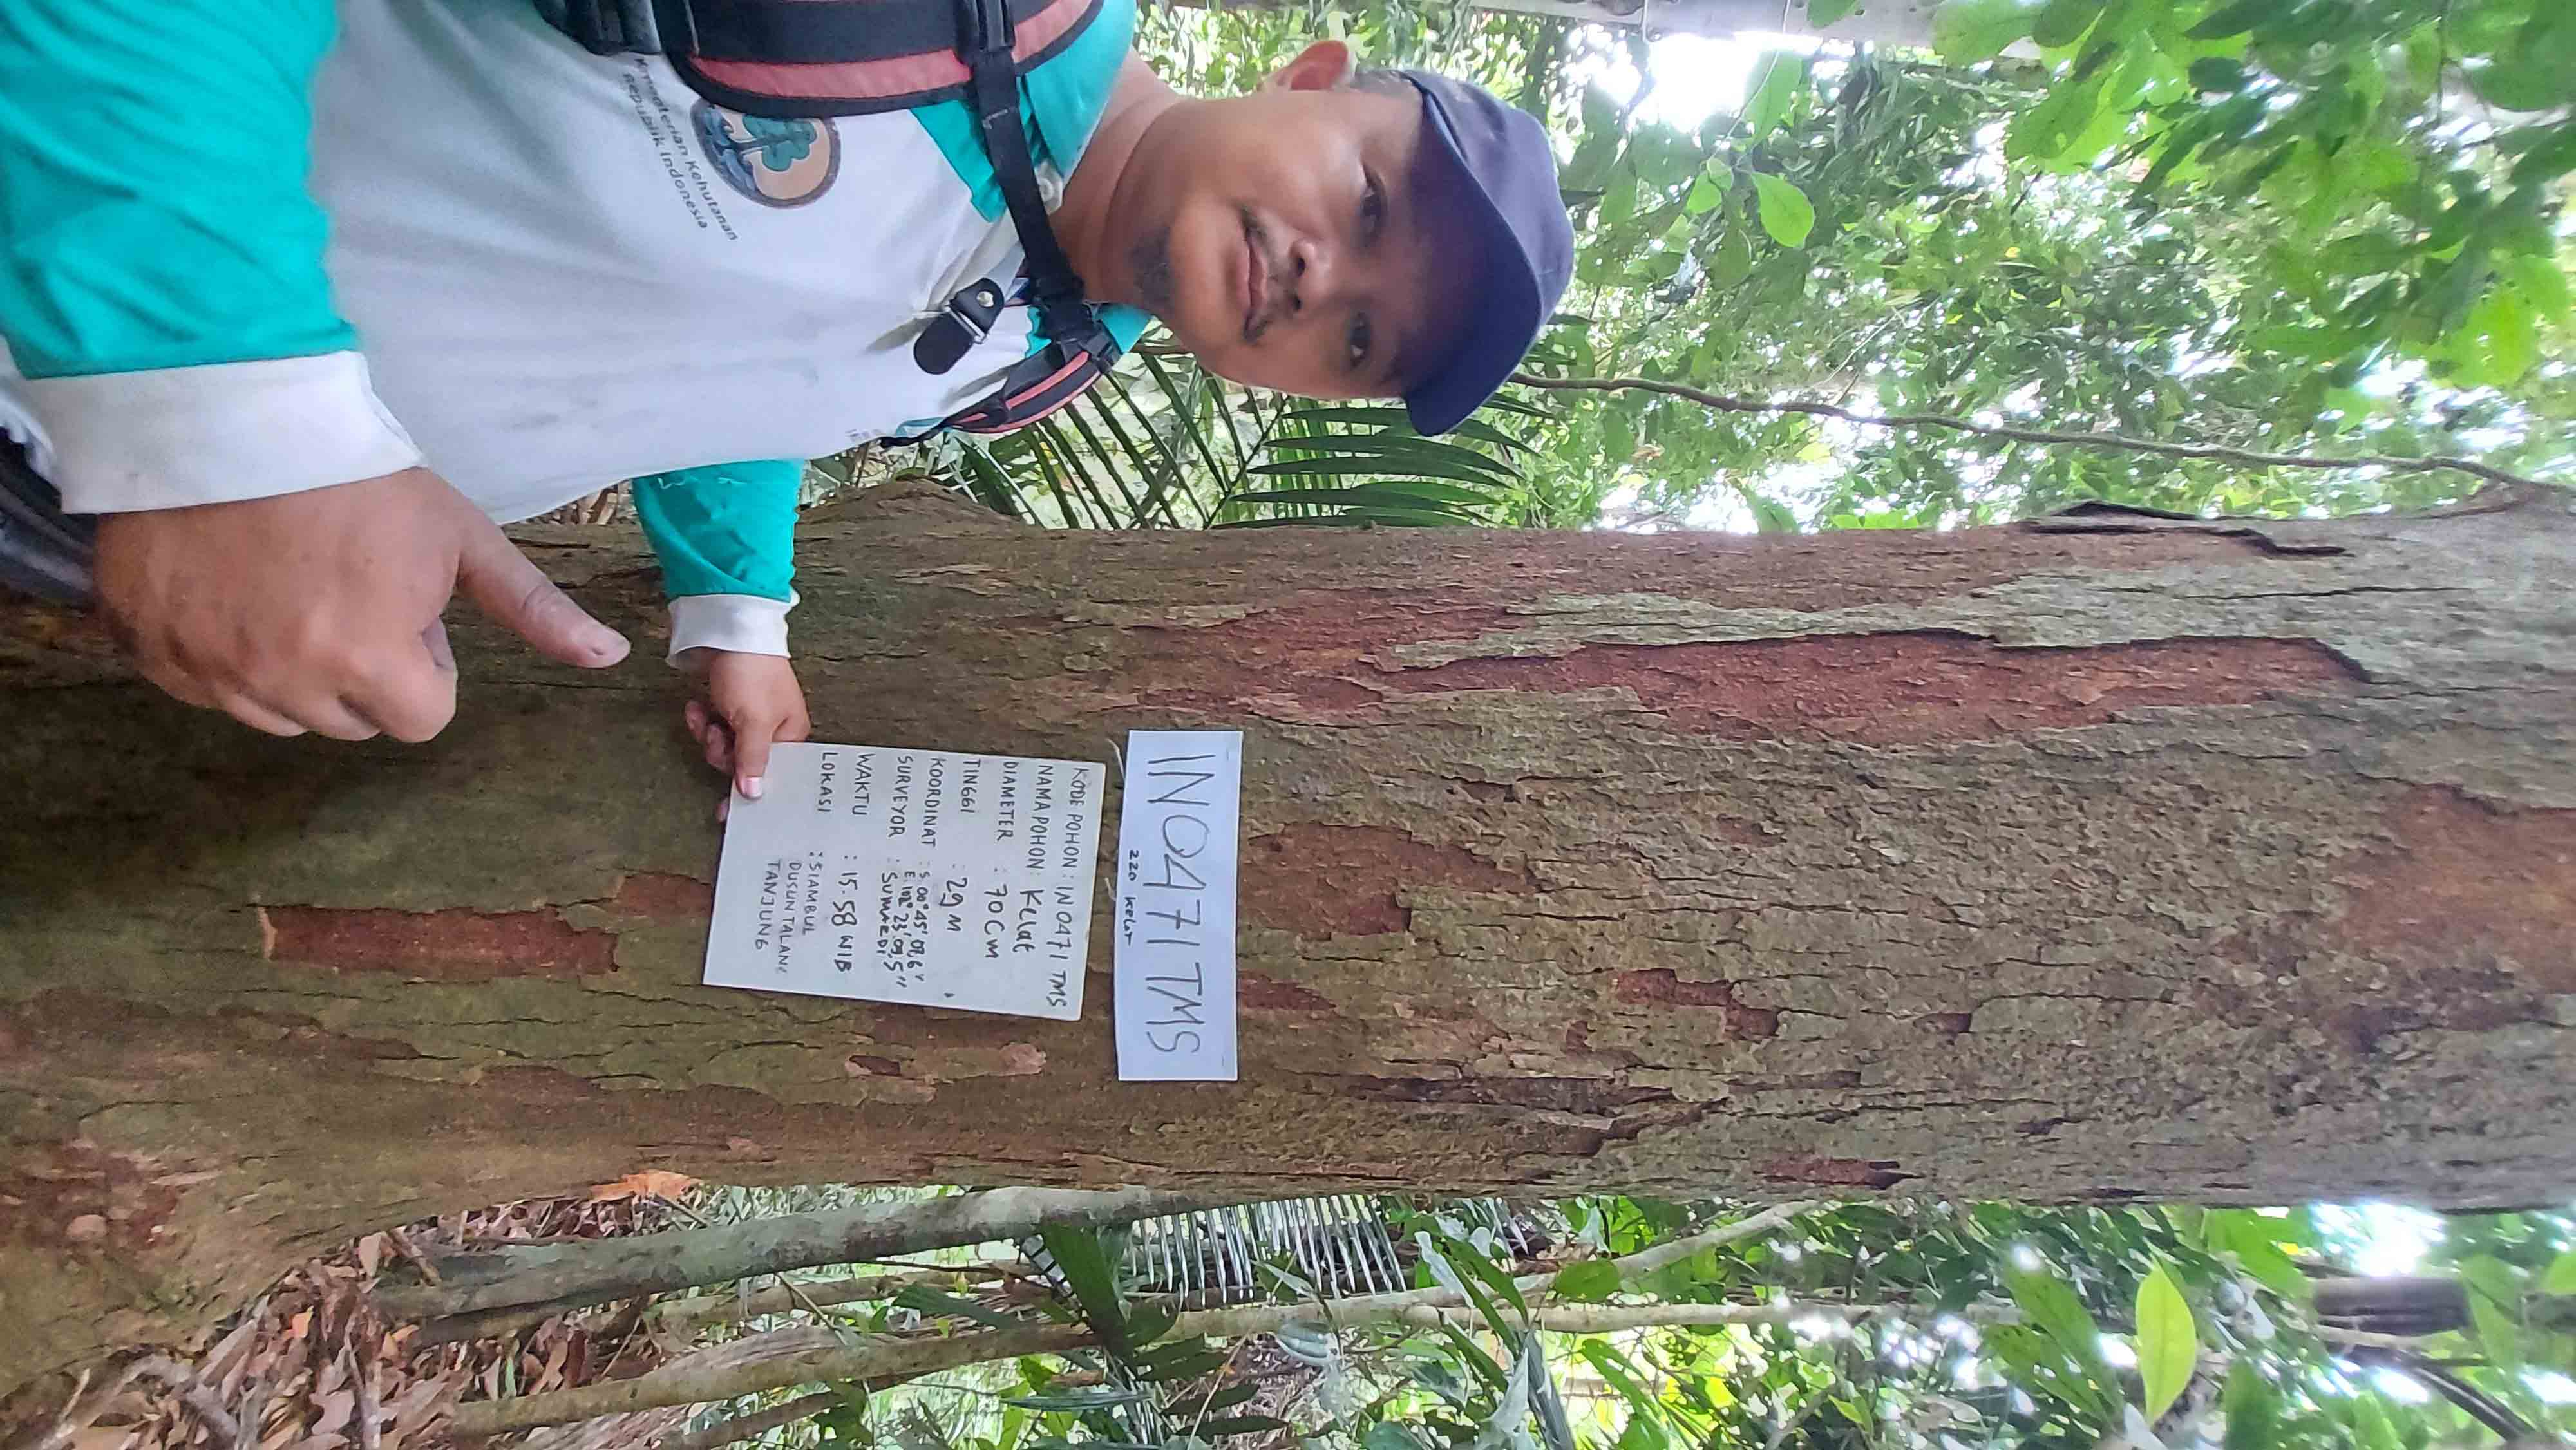 IN0471TMS
220 Kelat
KODE POHON : IN0471 TMS
NAMA POHON : Kelat
DIAMETER : 70 Cm
TINGGI : 29 M
KOORDINAT : S. 00°45'09,6"
E. 102° 23' 09,5"
SURVEYOR : SUMARDI
WAKTU : 15.58 WIB
LOKASI : SIAMBUL
DUSUN TALANG
TANJUNG
Kementerian Kehutanan
Republik Indonesia